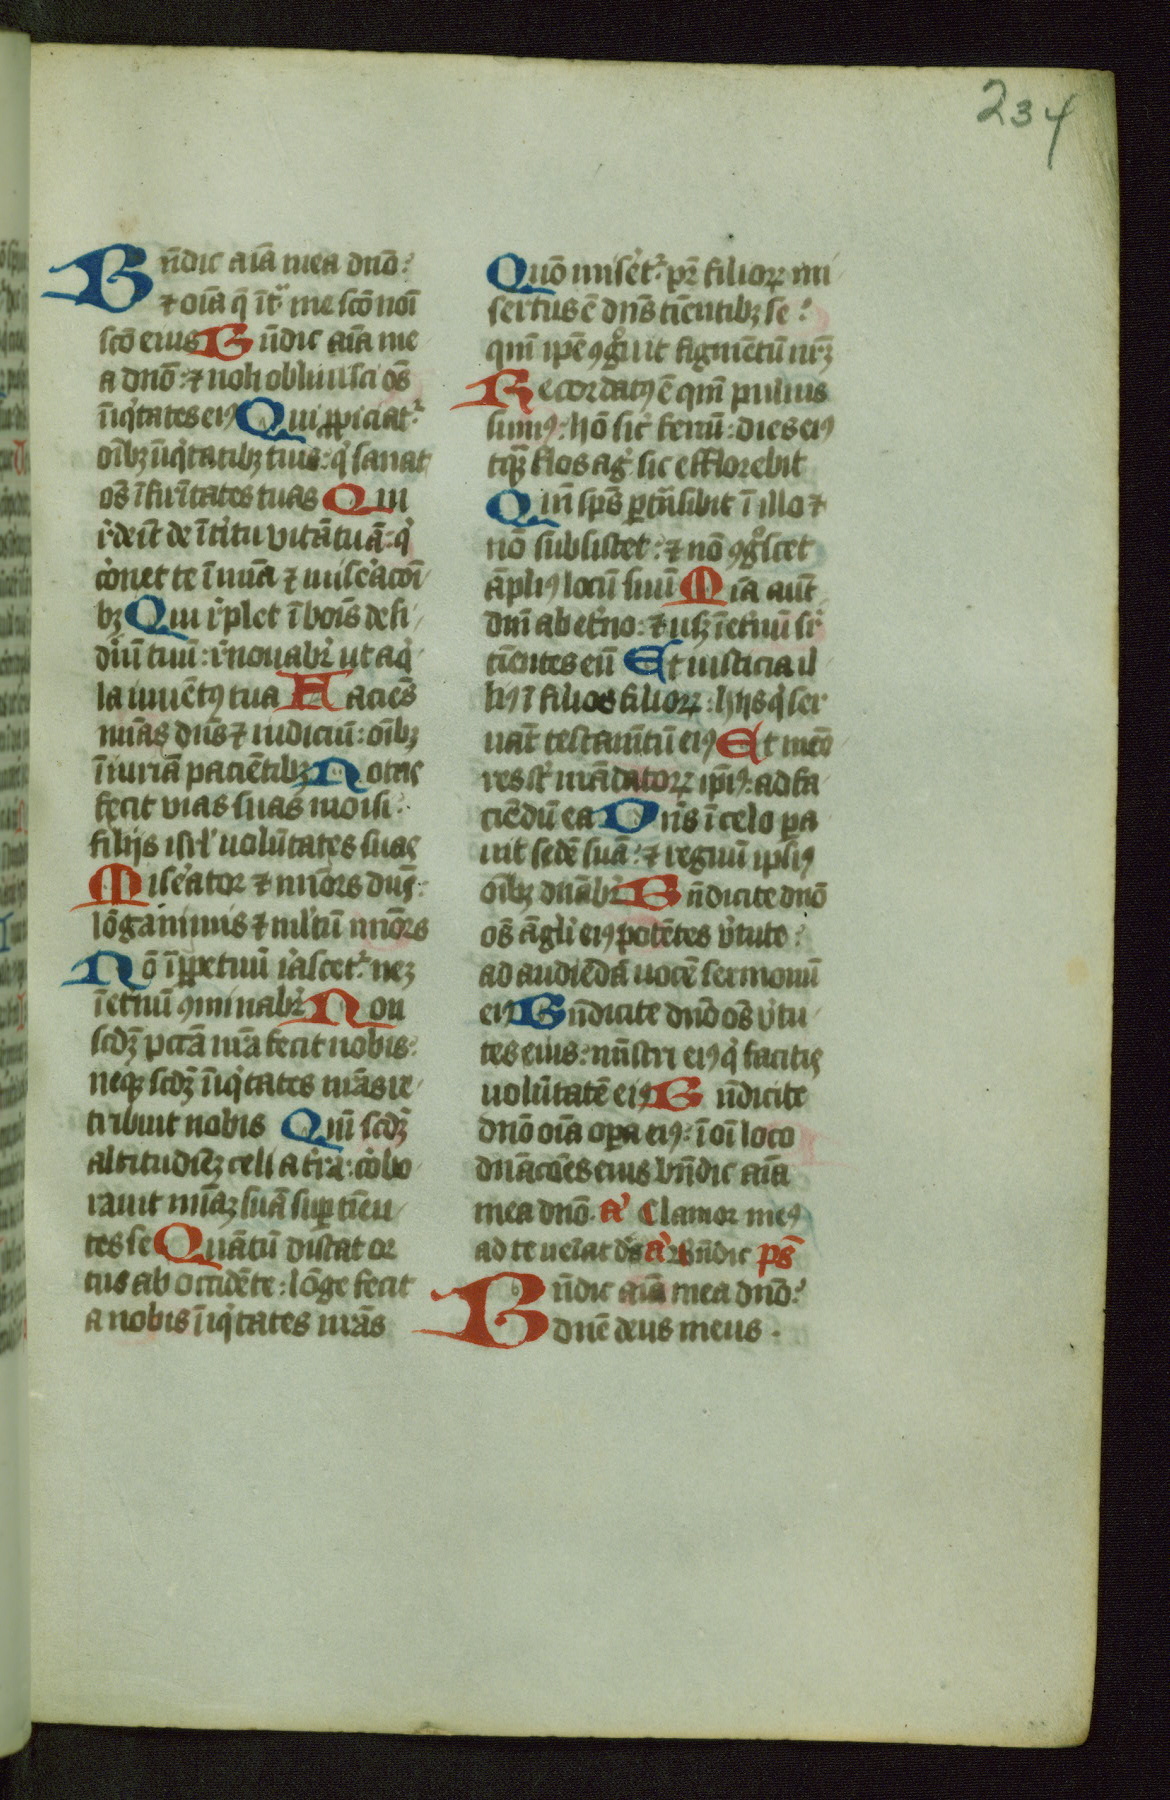 234
Bn̄dic aīa mea dnō:
⁊ oīa q̄ īt͛ me scō noī
scō eius Bn̄dic aīa me
a dnō: ⁊ noli obliuisci oēs
īiq̇tates eiꝰ Qui ꝓpiciat͛
oībꝫ īiq̇tatibꝫ tuis: q̇ sanat
oēs īfir̄itates tuas Qui
r̄deīt de īt̍itu vitā tuā: q̇
cōnet te ī mīa ⁊ mise̍acōī
bꝫ Qui r̄plet ī bōis desi
dīū tuū: r̄nouabr̄ ut aq̇
la iuuētꝯ tua Faciēs
mīas dn̄s ⁊ iudiciū: oībꝫ
īiuriā pacientibꝫ Notas
fecit vias suas moisi:
filijs isrl̄ volūtates suas
Mise̍ator ⁊ mīors dn̄s:
lōganimis ⁊ ml̄tū mīors
Nō īꝑpetuū ir̄ascet͛: neqꝫ
ī etnū ꝯminabr̄ Non
scdꝫ pctā nr̄a fecit nobis:
neqꝫ scdꝫ īiq̇tates nr̄as re
tribuit nobis Qm̄ scdꝫ
altitudīez celi a tr̄a: cōbo
rauit mīaꝫ suā suꝑ tīen
tes se Quātū distat or
tus ab occidēte: lōge fecit
a nobis īiq̇tates nr̄as
Quō mise̍t͛: pr̄ filioꝝ mi
sertus ē dn̄s tīentibꝫ se:
qm̄ ip̄e ꝯgͦuit figmētū nr̄ꝫ
Recordatꝰ ē qm̄ puluis
sumꝰ: hō sic̄ fenū: dies eiꝰ
tāq̄ flos ag̍ sic efflorebit
Qm̄ sp̄s ꝑtn̄sibit ī illo ⁊
nō subsistet: ⁊ nō ꝯgͦscet
āpliꝰ locū suū Mīa aut̄
dnī ab et̍no: ⁊ usqꝫ ī et̍nū sr̄
tīentes eū Et iusticia il
liꝰ ī filios filioꝝ: hijs q̇ ser
uāt testamtū eiꝰ Et memō
res st̄ mādatoꝝ ip̄iꝰ: ad fa
ciēdū ea Dn̄s ī celo ꝑa
uit sedē suā: ⁊ regnū ipsiꝰ
oībꝫ dn̄abr̄ Bn̄dicite dnō
oēs āgli eiꝰ potētes v̍tute:
ad audiēdā uocē sermonū
eiꝰ Bn̄dicite dnō oēs v̍tu
tes eius: mīstri eiꝰ q̇ facitis
uolūtatē eiꝰ Bn̄dicite
dnō oīa oꝑa eiꝰ: ī oī loco
dn̄acōēs eius bn̄dic aīa
mea dnō. a̍ Clamor meꝰ
ad te veīat dē a̍ Bn̄dic ps̄
Bn̄dic aīa mea dnō:
dnē deus meus.